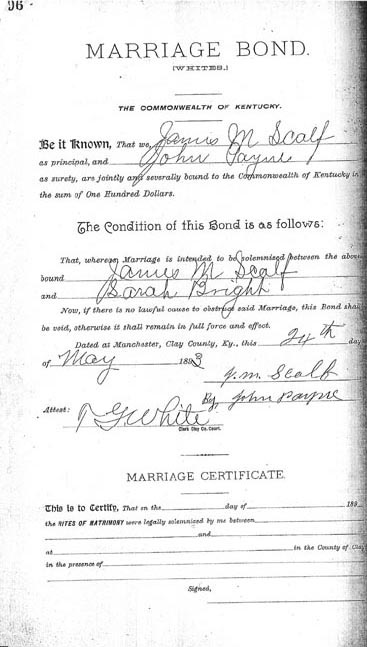 96
MARRIAGE BOND.
(WHITES.)
THE COMMONWEALTH OF KENTUCKY.
Be it Known, That we, James M Scalf
as principal, and John Payne
as surety, are jointly and severally bound to the Commonwealth of Kentucky in
the sum of One Hundred Dollars.
The Condition of this Bond is as follows:
That, whereas Marriage is intended to be solemnized between the above
bound James M Scalf
and Sarah Bright
Now, if there is no lawful cause to obstruct said Marriage, this Bond shall
be void, otherwise it shall remain in full force and effect.
Dated at Manchester, Clay County, Ky., this 24th day
of May 1893
J. M. Scalf
By John Payne
Attest: T G White
Clerk Clay Co. Court.
MARRIAGE CERTIFICATE.
This is to Certify, That on the day of 189
the RITES OF MATRIMONY were legally solemnized by me between
and
at in the County of Clay
in the presence of
Signed,